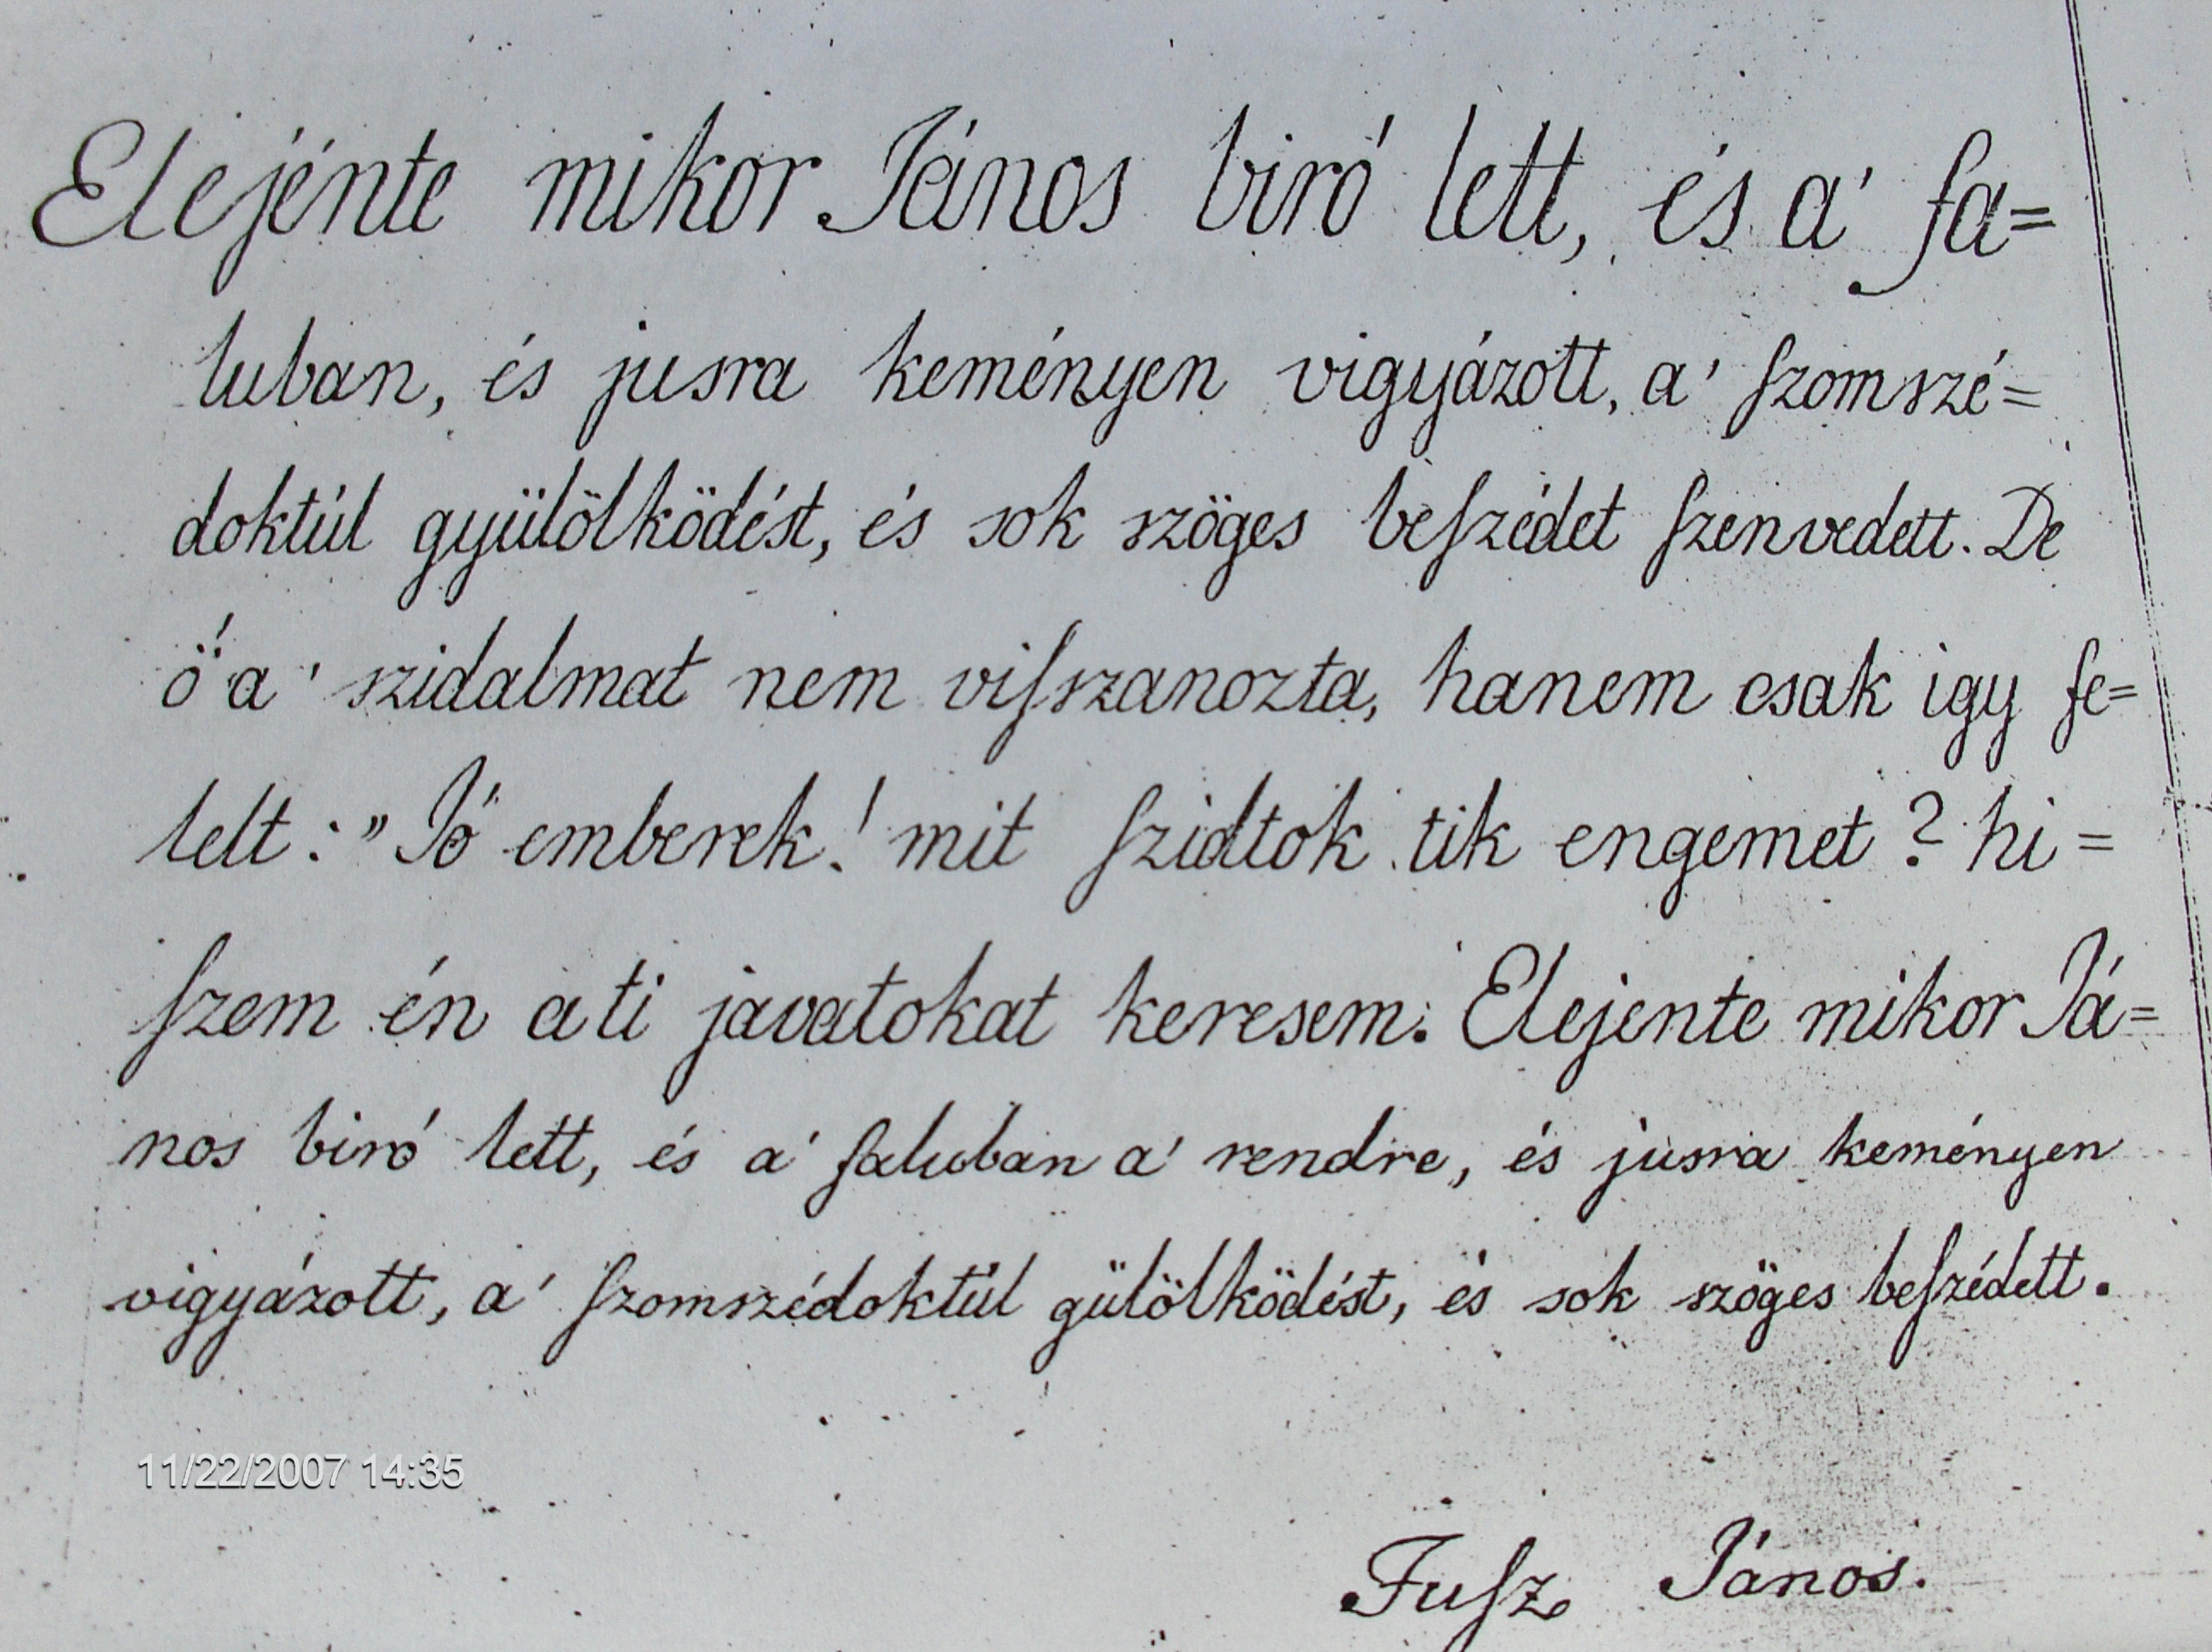 Elejénte mikor János biró lett, és a' fa=
luban, és jusra keményen vigyázott, a' ſzomszé=
doktúl gyülölködést, és sok szöges beſzédet ſzenvedett. De
ő a' szidalmat nem viſszanozta, hanem csak igy fe=
lelt: „Jó emberek! mit ſzidtok tik engemet? hi=
ſzem én a ti javatokat keresem. Elejente mikor Já=
nos biró lett, és a' faluban a' rendre, és jusra keményen
vigyázott, a' ſzomszédoktúl gülölködést, és sok szöges beſzédett.
11/22/2007 14:35
Fuſz János.